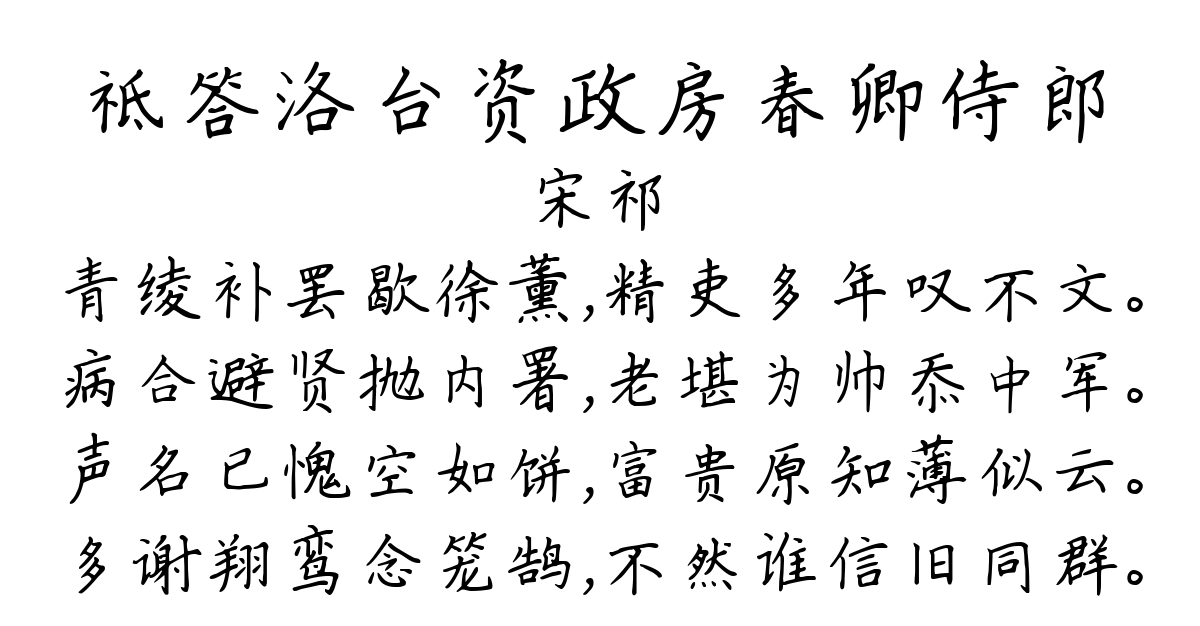 祗答洛台资政房春卿侍郎
宋祁
青绫补罢歇徐薰,精吏多年叹不文。
病合避贤抛内署,老堪为帅忝中军。
声名已愧空如饼,富贵原知薄似云。
多谢翔鸾念笼鹄,不然谁信旧同群。